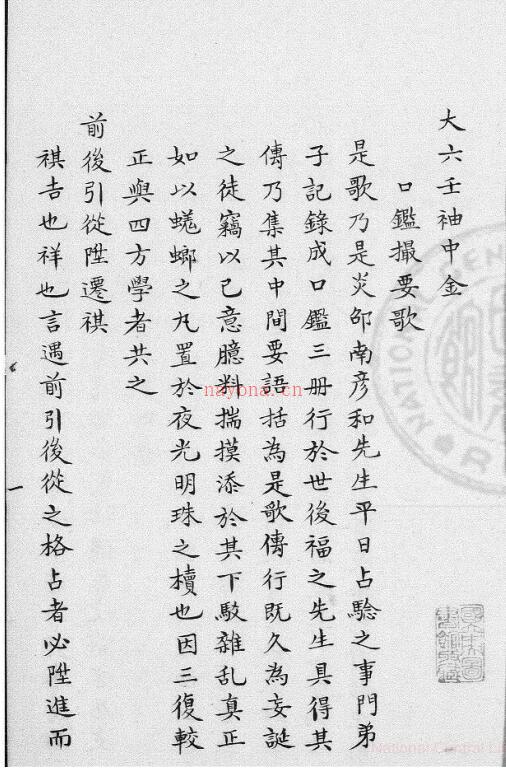 大六壬袖中金
口鑑撮要歌
是歌乃是炎邵南彦和先生平日占驗之事門弟
子記錄成口鑑三册行於世後福之先生具得其
傳乃集其中間要語括為是歌傳行既久為妄誕
之徒竊以己意臆料揣摸添於其下駁雜乱真正
如以蜣螂之丸置於夜光明珠之櫝也因三復較
正與四方學者共之
前後引從陞遷祺
祺吉也祥也言遇前引後從之格占者必陞進而
一
nayona.cn
National Central Li